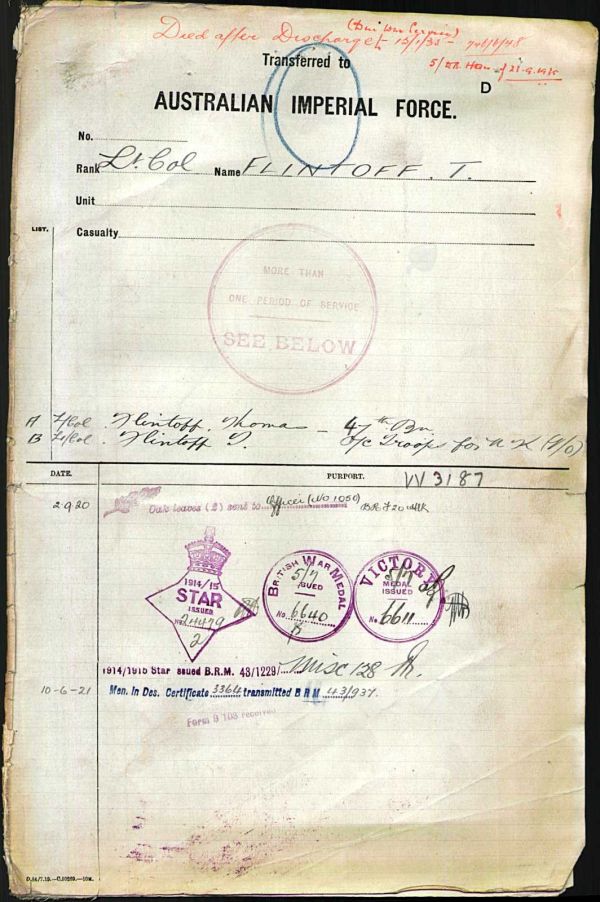 Died after Discharge 13/1/35
Transferred to
D
AUSTRALIAN IMPERIAL FORCE.
No.
Rank Lt Col Name FLINTOFF. T.
Unit
LIST.
Casualty
MORE THAN
ONE PERIOD OF SERVICE
SEE BELOW
A L/Col Flintoff. Thomas — 47th Bn
B Lt/Col Flintoff T. O/c Troops for U K
DATE. PURPORT. VV 3187
2 9 20 Oak leaves (2) sent to Officer (No 1050)
1914/15
STAR
ISSUED
No. 24479
2
BRITISH WAR MEDAL
5/7
ISSUED
No. 6640
VICTORY
5/7
MEDAL
ISSUED
No. 6611
1914/1915 Star issued B.R.M. 43/1229/ Misc 128
10-6-21 Men. In Des. Certificate 3364 transmitted B R M 43/937.
Form B 103 received
D.84/7.19.—C.10269.—10M.